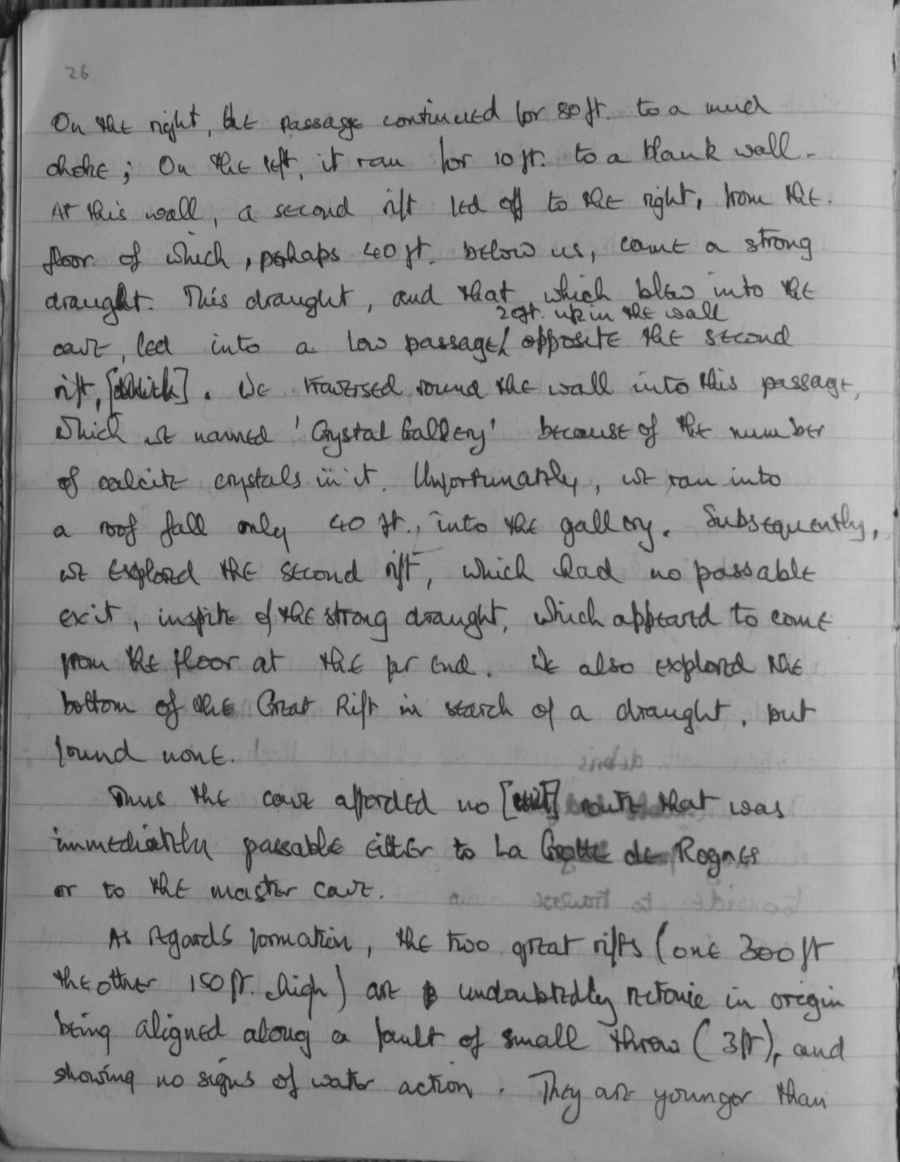 26
On the right, the passage continued for 80ft. to a mud
choke; On the left, it ran for 10ft. to a blank wall.
At this wall, a second rift led off to the right, from the
floor of which, perhaps 40ft. below us, came a strong
draught. This draught, and that which blew into the
20ft. up in the wall
cave, led into a low passage/ opposite the second
rift, [which]. We traversed round the wall into this passage,
which we named 'Crystal Gallery' because of the number
of calcite crystals in it. Unfortunately, we ran into
a roof fall only 40 ft., into the gallery. Subsequently,
we explored the second rift, which had no passable
exit, inspite of the strong draught, which appeared to come
from the floor at the far end. We also explored the
bottom of the Great Rift in search of a draught, but
found none.
Thus the cave afforded no [exit] route that was
immediately passable either to La Grotte de Rognes
or to the master cave.
As regards formation, the two great rifts (one 300ft
the other 150ft. high) are undoubtedly tectonic in origin
being aligned along a fault of small throw (3ft), and
showing no signs of water action. They are younger than